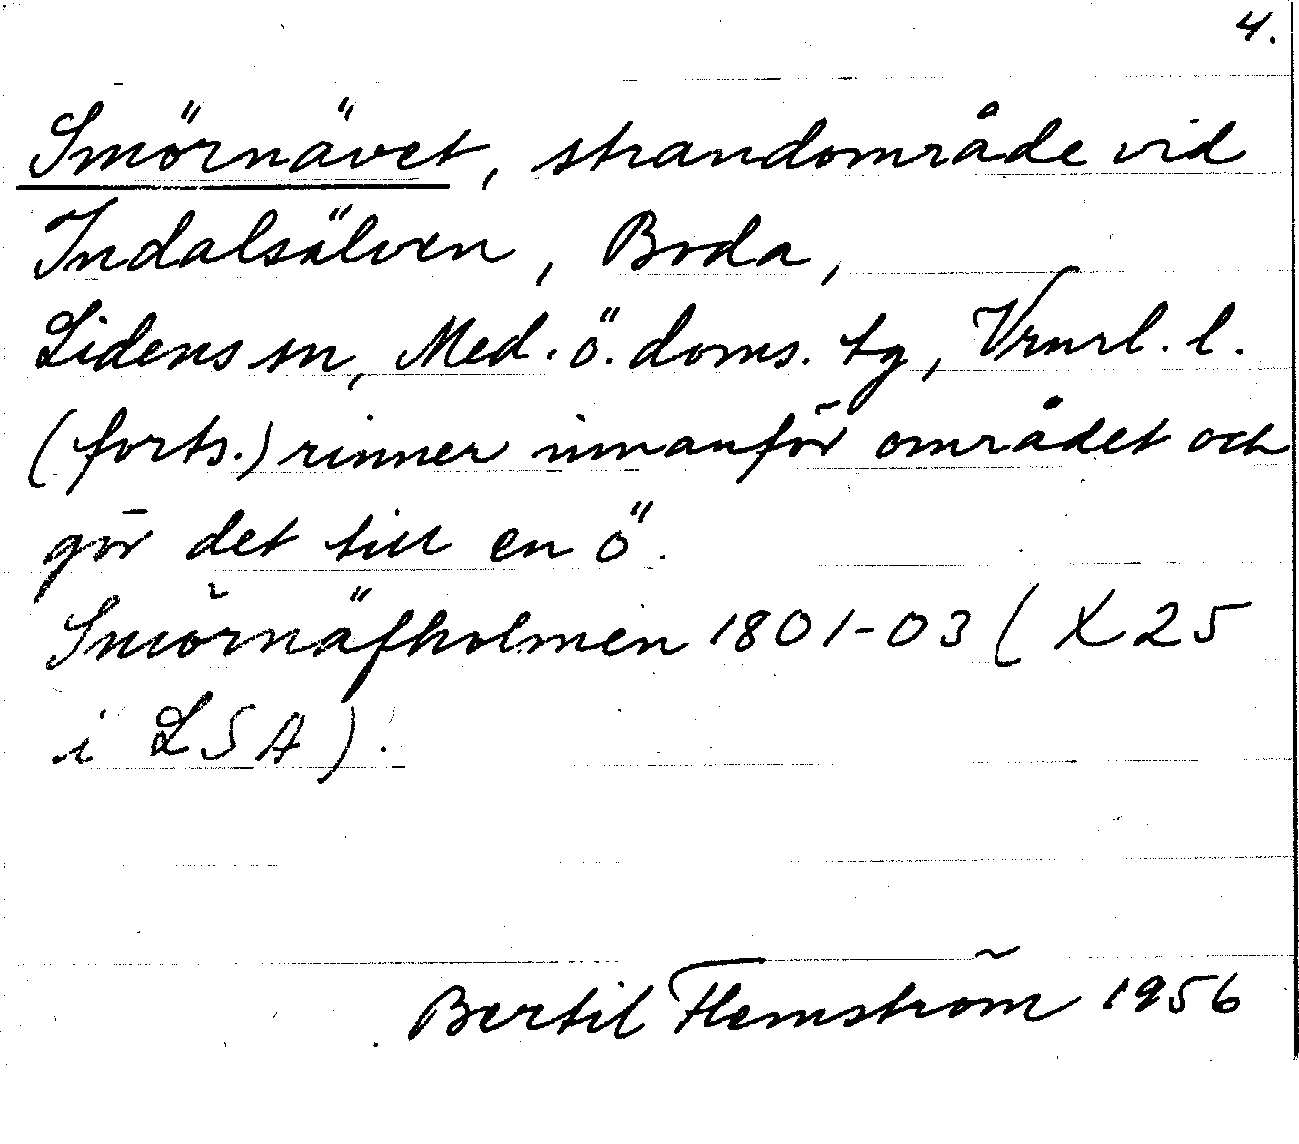 4.
Smörnävet, strandområde vid
Indalsälven, Boda,
Lidens sn, Med. ö. doms. tg, Vrnrl. l.
(forts.) rinner innanför området och
gör det till en ö.
Smörnäfholmen 1801-03 (X 25
i LSA).
Bertil Flemström 1956